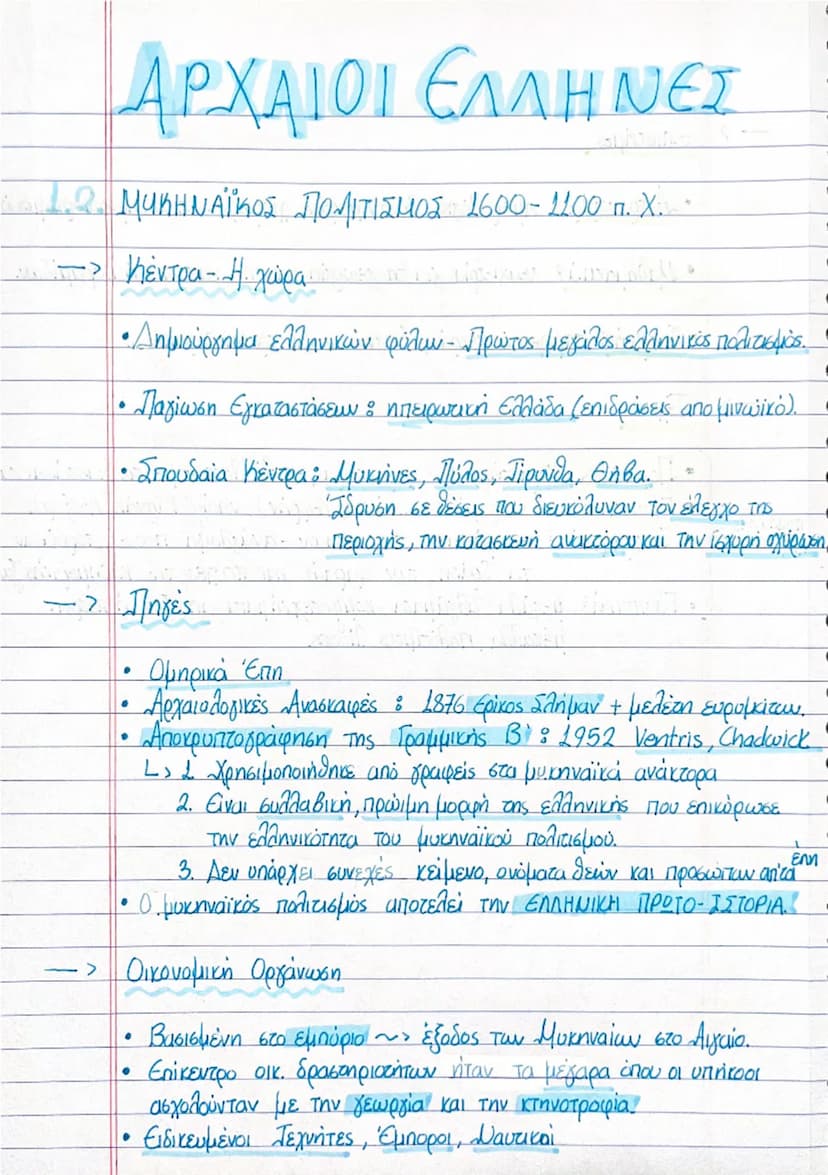 ΑΡΧΑΙΟΙ ΕΛΛΗΝΕΣ
1.2. ΜΥΚΗΝΑΪΚΟΣ ΠΟΛΙΤΙΣΜΟΣ 1600-1100 π. Χ.
—> Κέντρα - Η χώρα
• Δημιούργημα ελληνικών φύλων - Πρώτος μεγάλος ελληνικός πολιτισμός.
• Παγίωση Εγκαταστάσεων : ηπειρωτική Ελλάδα (επιδράσεις απο μινωϊκό).
• Σπουδαία Κέντρα : Μυκήνες, Πύλος, Τίρυνθα, Θήβα.
Ίδρυση σε θέσεις που διευκόλυναν τον έλεγχο της
περιοχής, την κατασκευή ανακτόρου και την ισχυρή οχύρωση
—> Πηγές
• Ομηρικά Έπη
• Αρχαιολογικές Ανασκαφές : 1876 Ερίκος Σλήμαν + μελέτη ευρυμάτων.
• Αποκρυπτογράφηση της Γραμμικής Β' : 1952 Ventris, Chadwick
↳ 1. Χρησιμοποιήθηκε από γραφείς στα μυκηναϊκά ανάκτορα
2. Είναι συλλαβική, πρώιμη μορφή της ελληνικής που επικύρωσε
την ελληνικότητα του μυκηναϊκού πολιτισμού.
3. Δεν υπάρχει συνεχές κείμενο, ονόματα θεών και προσώπων απ'τα έπη
• Ο μυκηναϊκός πολιτισμός αποτελεί την ΕΛΛΗΝΙΚΗ ΠΡΩΤΟ-ΙΣΤΟΡΙΑ.
—> Οικονομική Οργάνωση
• Βασισμένη στο εμπόριο ~> έξοδος των Μυκηναίων στο Αιγαίο.
• Επίκεντρο οικ. δραστηριοτήτων ήταν τα μέγαρα όπου οι υπήκοοι
ασχολούνταν με την γεωργία και την κτηνοτροφία.
• Ειδικευμένοι Τεχνήτες, Έμποροι, Ναυτικοί